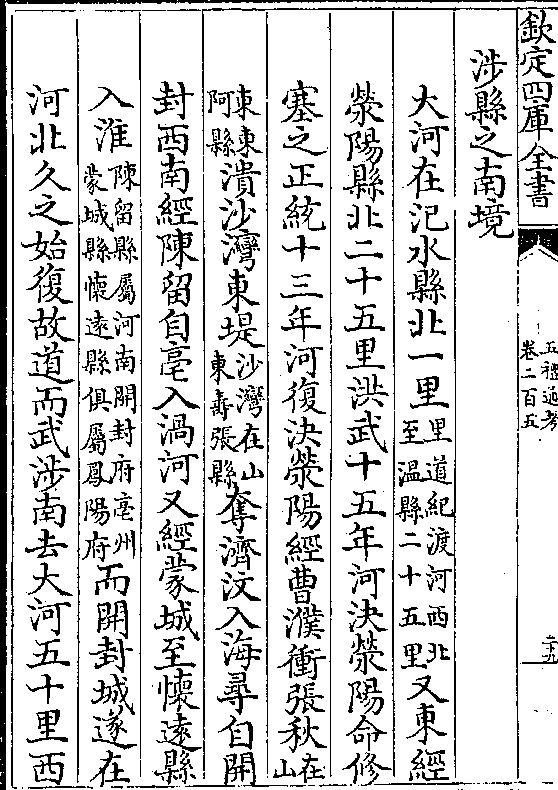 欽定四庫全書
五禮通考
卷二百五
二十九
涉縣之南境
大河在汜水縣北一里里道紀渡河西北至温縣二十五里又東經
滎陽縣北二十五里洪武十五年河決滎陽命修
塞之正統十三年河復決滎陽經曹濮衝張秋在山
東東阿縣潰沙灣東堤沙灣在山東壽張縣奪濟汶入海尋自開
封西南經陳留自亳入渦河又經蒙城至懷遠縣
入淮陳留縣屬河南開封府亳州蒙城縣懷遠縣俱屬鳳陽府而開封城遂在
河北久之始復故道而武涉南去大河五十里西